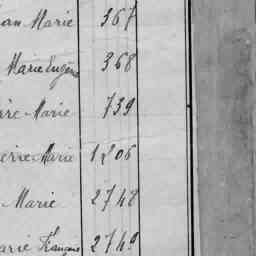 an Marie 367
Marie Eugène 368
rre Marie 739
ierre Marie 1206
Marie 2748
arie François 2749